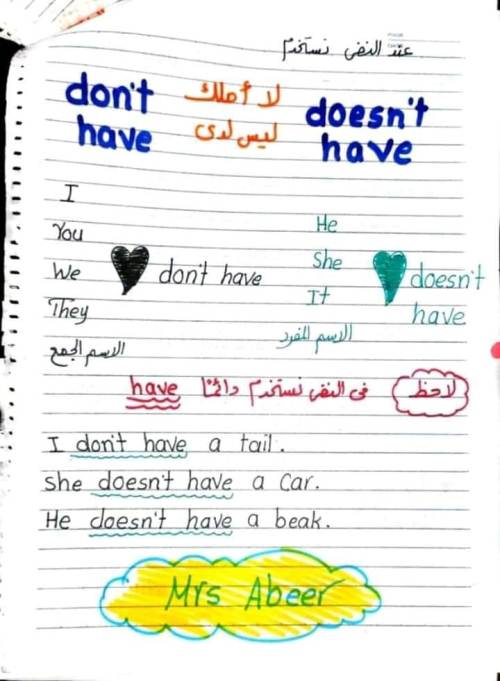 عند النفى نستخدم
don't have
لا أملك
ليس لدى
doesn't have
I
You
We
They
الاسم الجمع
don't have
He
She
It
الاسم المفرد
doesn't have
لاحظ فى النفى نستخدم دائمًا have
I don't have a tail.
She doesn't have a car.
He doesn't have a beak.
Mrs Abeer